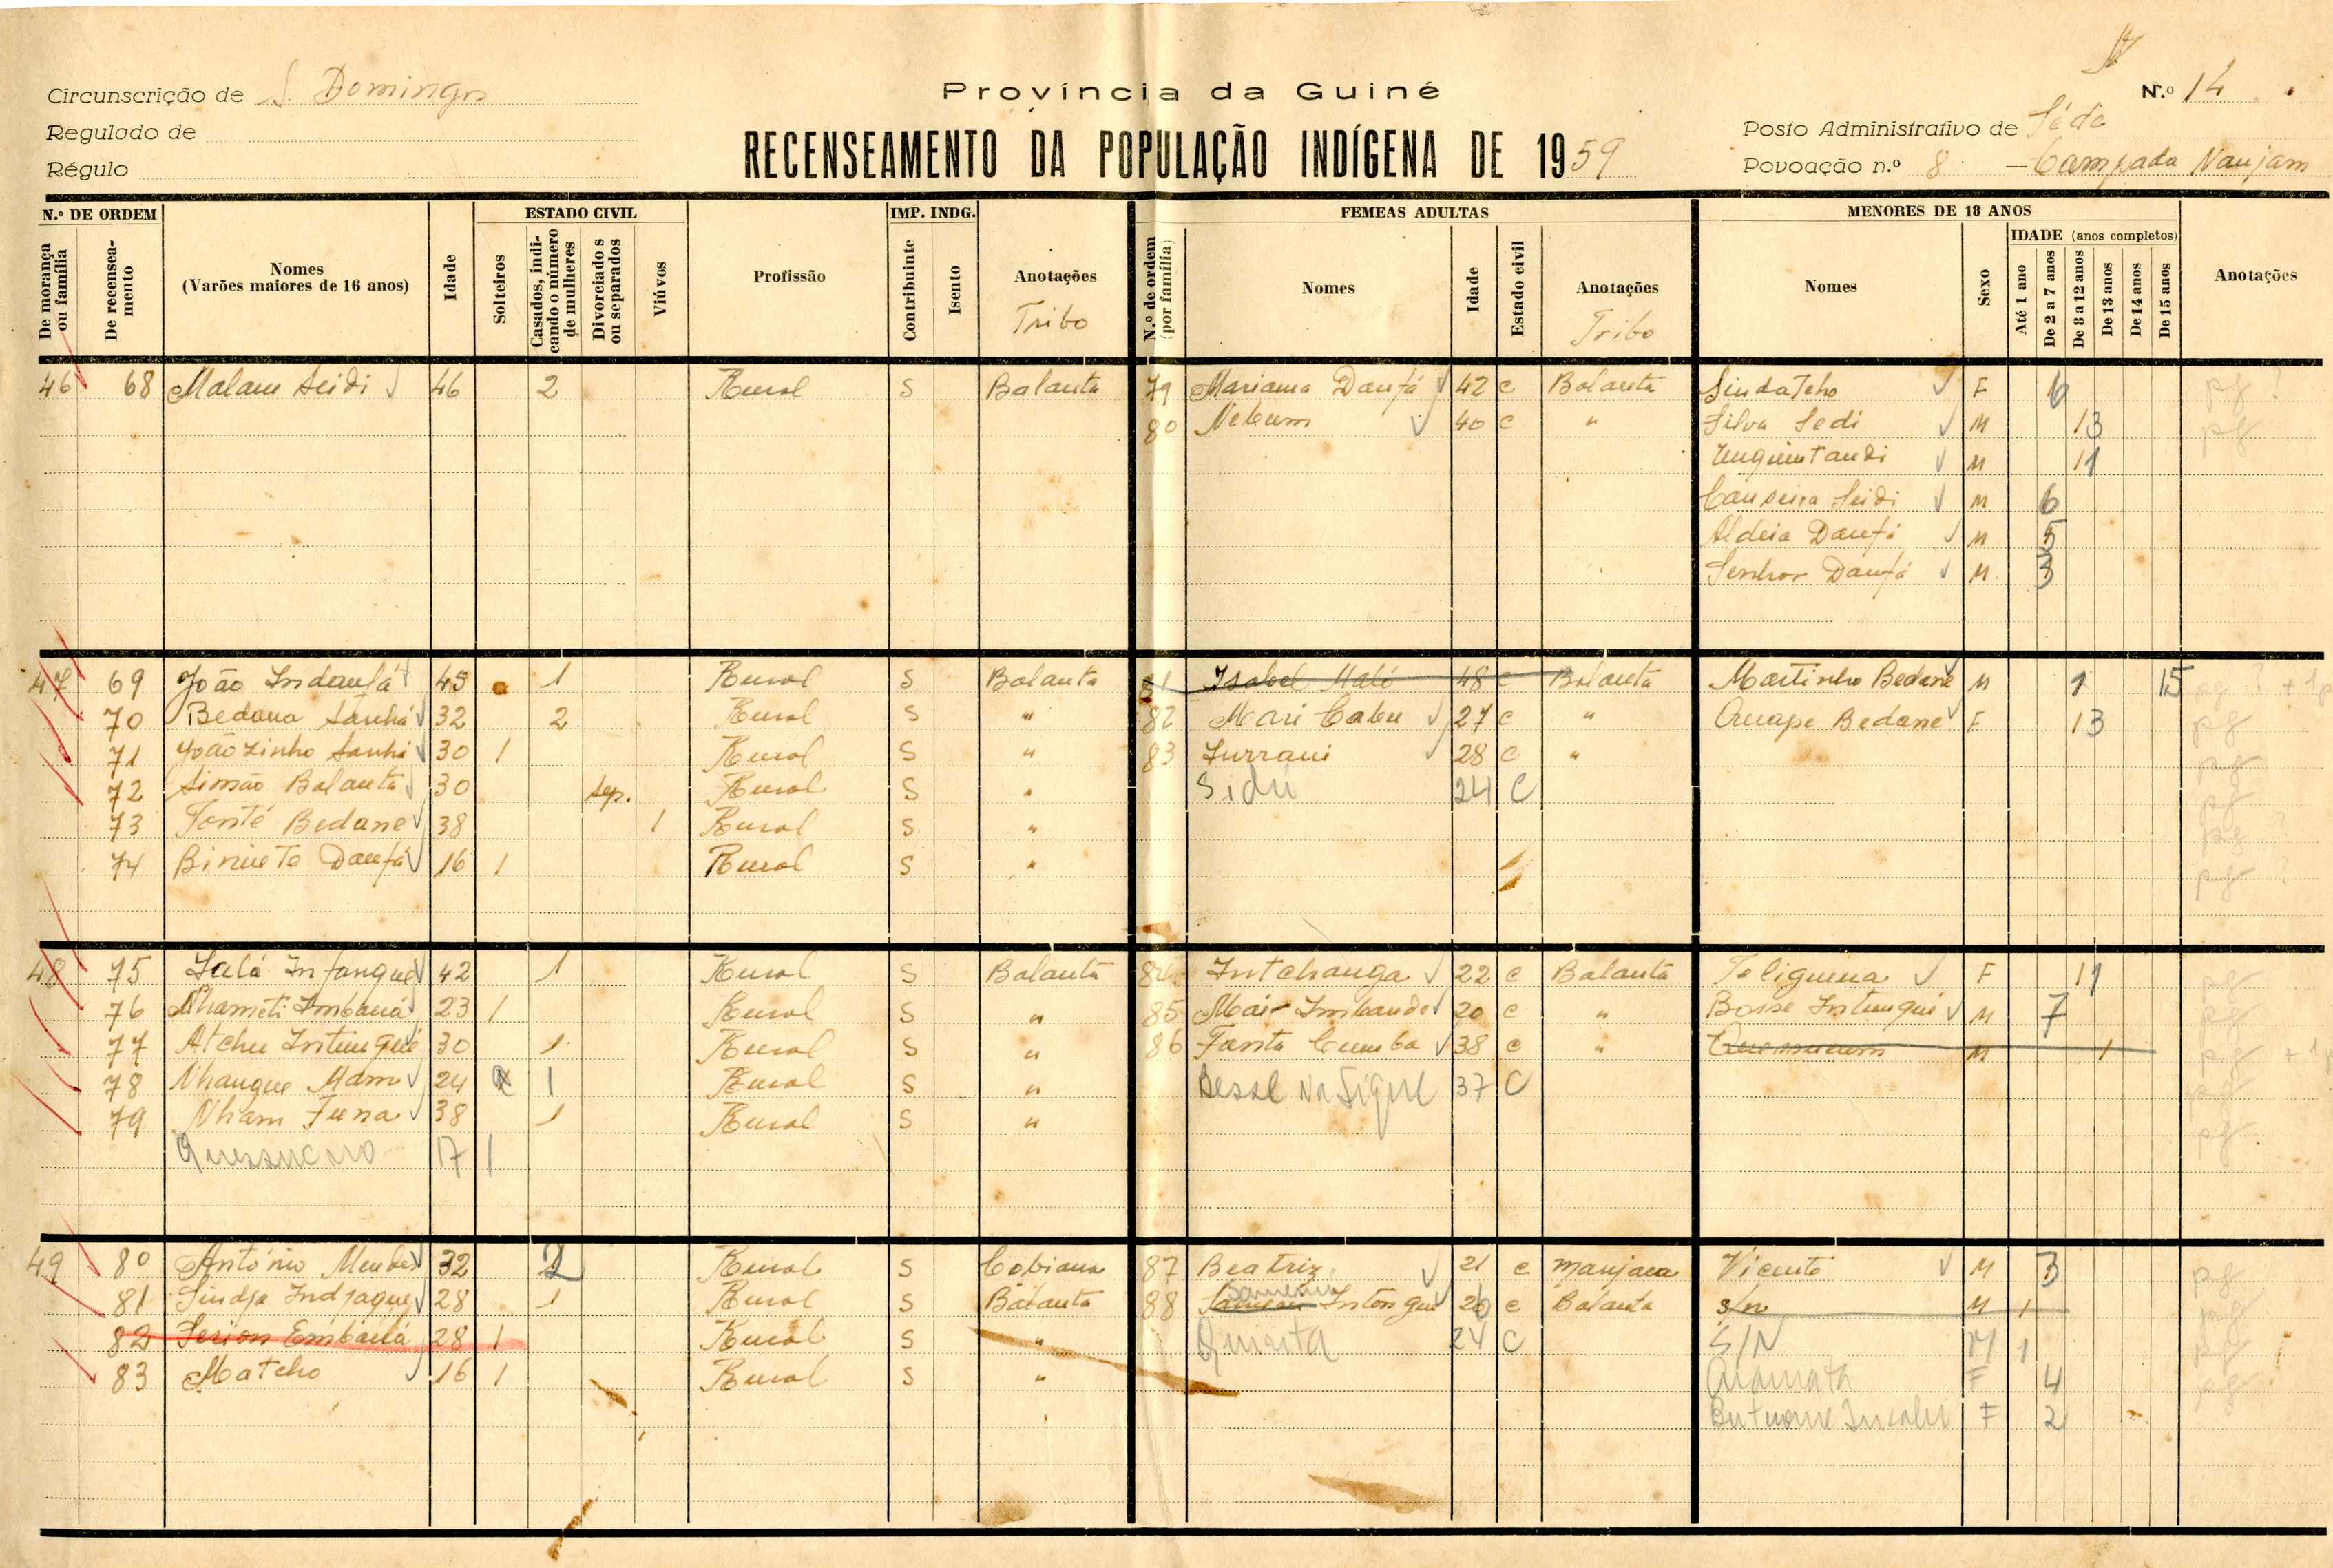 Circunscrição de S. Domingos
Província da Guiné
N.º 14
Regulado de
RECENSEAMENTO DA POPULAÇÃO INDÍGENA DE 1959
Posto Administrativo de Séde
Régulo
Povoação n.º 8 — Campada Naujam
N.º DE ORDEM
De morança ou família
De recenseamento
Nomes
(Varões maiores de 16 anos)
Idade
ESTADO CIVIL
Solteiros
Casados, indicando o número de mulheres
Divorciados ou separados
Viúvos
Profissão
IMP. INDG.
Contribuinte
Isento
Anotações
Tribo
FEMEAS ADULTAS
N.º de ordem (por família)
Nomes
Idade
Estado civil
Anotações
Tribo
MENORES DE 18 ANOS
Nomes
Sexo
IDADE (anos completos)
Até 1 ano
De 2 a 7 anos
De 8 a 12 anos
De 13 anos
De 14 anos
De 15 anos
Anotações
46 68 Malam Seidi 46 2 Rural S Balanta 79 Mariama Danfá 42 c Balanta Sindatcho F 6 pg ?
80 Nebum 40 c " Silva Sedi M 13 pg
Unquintandi M 11
Canseira Seidi M 6
Aldeia Danfá M 5
Senhor Danfá M 3
47 69 João Indanfá 45 1 Rural S Balanta 81 Isabel Malé 48 c Balanta Martinho Bedane M 1 15 pg ? + 1p
70 Bedana Sanhá 32 2 Rural S " 82 Mari Cabu 27 c " Quape Bedane F 13 pg
71 Joãozinho Sanhá 30 1 Rural S " 83 Jurrani 28 c " pg
72 Simão Balanta 30 sep. Rural S " Sidú 24 C pg
73 Tonté Bedane 38 1 Rural S " pg ?
74 Binueto Danfá 16 1 Rural S " pg ?
48 75 Lalá Infangue 42 1 Rural S Balanta 84 Intchanga 22 c Balanta Teliguena F 11 pg
76 Nhameti Imbaná 23 1 Rural S " 85 Mái Imbando 20 c " Bosse Intungué M 7 pg
77 Atchu Intungué 30 1 Rural S " 86 Fanta Cumba 38 c " M 1 pg + 1p
78 Nhangue Mam 24 1 Rural S " Besse Na Sigue 37 C pg
79 Nham Funa 38 1 Rural S " pg
Quessucuno 17 1
49 80 António Mendes 32 2 Rural S Cobiana 87 Beatriz 21 c manjaca Vicente M 3 pg
81 Sindja Indjague 28 1 Rural S Balanta 88 Intongue 26 c Balanta s/n M 1 pg
82 Serion Embaná 28 1 Rural S " Quinta 24 C S/N M 1 pg
83 Matcho 16 1 Rural S " F 4 pg
F 2